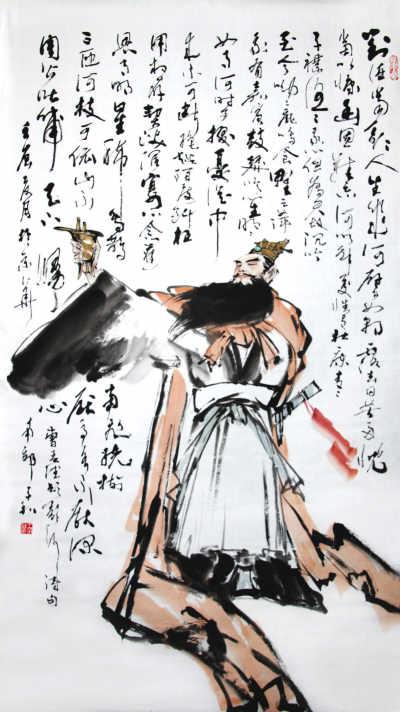 對酒當歌人生幾何譬如朝露去日苦多慨
當以慷幽思難忘何以解憂惟有杜康青青
子衿悠悠我心但為君故沉吟
至今呦呦鹿鳴食野之萍
我有嘉賓鼓瑟吹笙明
明如月何時可掇憂從中
來不可斷絕越陌度阡枉
用相存契闊談讌心念舊
恩月明星稀烏鵲
南飛繞樹
三匝何枝可依山不
厭高水不厭深
周公吐哺天下歸
心
壬辰月於京華
曹孟德短歌行詩句